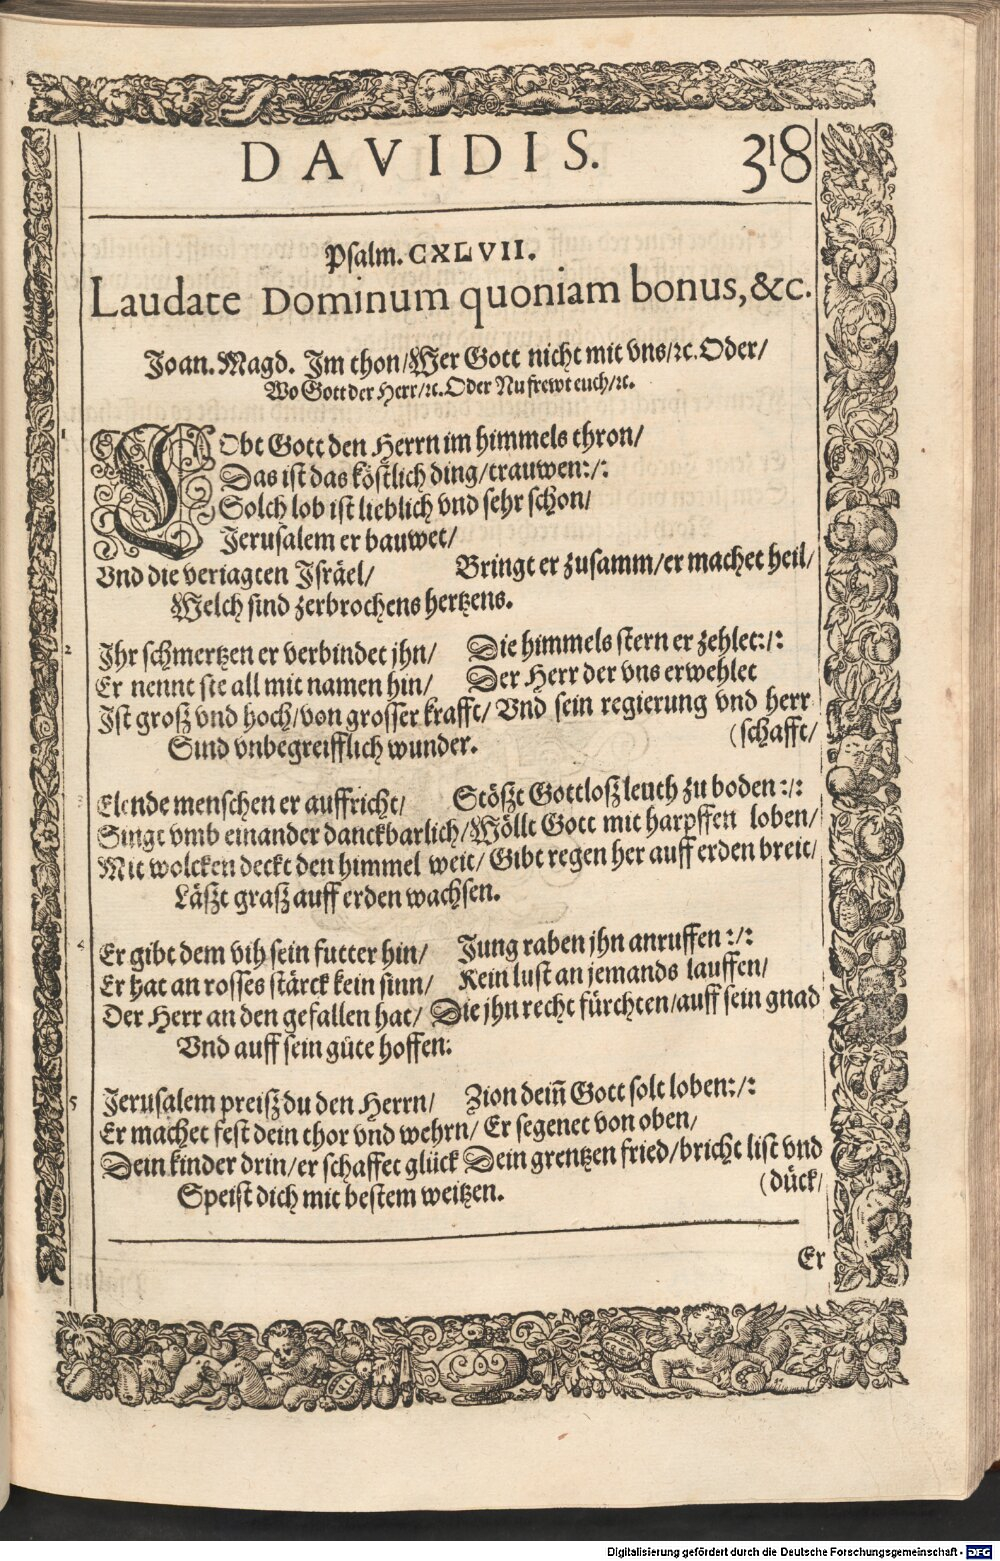 DAVIDIS. 318
Psalm. CXLVII.
Laudate Dominum quoniam bonus, &c.
Joan. Magd. Im thon/Wer Gott nicht mit vns/ꝛc. Oder/
Wo Gott der Herr/ꝛc. Oder Nu frewt euch/ꝛc.
1 LObt Gott den Herrn im himmels thron/
Das ist das köstlich ding/trauwen:/:
Solch lob ist lieblich vnd sehr schon/
Jerusalem er bauwet/
Vnd die veriagten Isräel/ Bringt er zusamm/er machet heil/
Welch sind zerbrochens hertzens.
2 Ihr schmertzen er verbindet jhn/ Die himmels stern er zehlet:/:
Er nennt sie all mit namen hin/ Der Herr der vns erwehlet
Ist groß vnd hoch/von grosser krafft/ Vnd sein regierung vnd herr
(schafft/
Sind vnbegreifflich wunder.
3 Elende menschen er auffricht/ Stößt Gottloß leuth zu boden:/:
Singt vmb einander danckbarlich/Wöllt Gott mit harpffen loben/
Mit wolcken deckt den himmel weit/ Gibt regen her auff erden breit/
Läßt graß auff erden wachsen.
4 Er gibt dem vih sein futter hin/ Jung raben jhn anruffen:/:
Er hat an rosses stärck kein sinn/ Kein lust an jemands lauffen/
Der Herr an den gefallen hat/ Die jhn recht fürchten/auff sein gnad
Vnd auff sein güte hoffen:
5 Jerusalem preiß du den Herrn/ Zion deiñ Gott solt loben:/:
Er machet fest dein thor vnd wehrn/ Er segenet von oben/
Dein kinder drin/er schaffet glück Dein grentzen fried/bricht list vnd
(dück/
Speist dich mit bestem weitzen.
Er
Digitalisierung gefördert durch die Deutsche Forschungsgemeinschaft - DFG